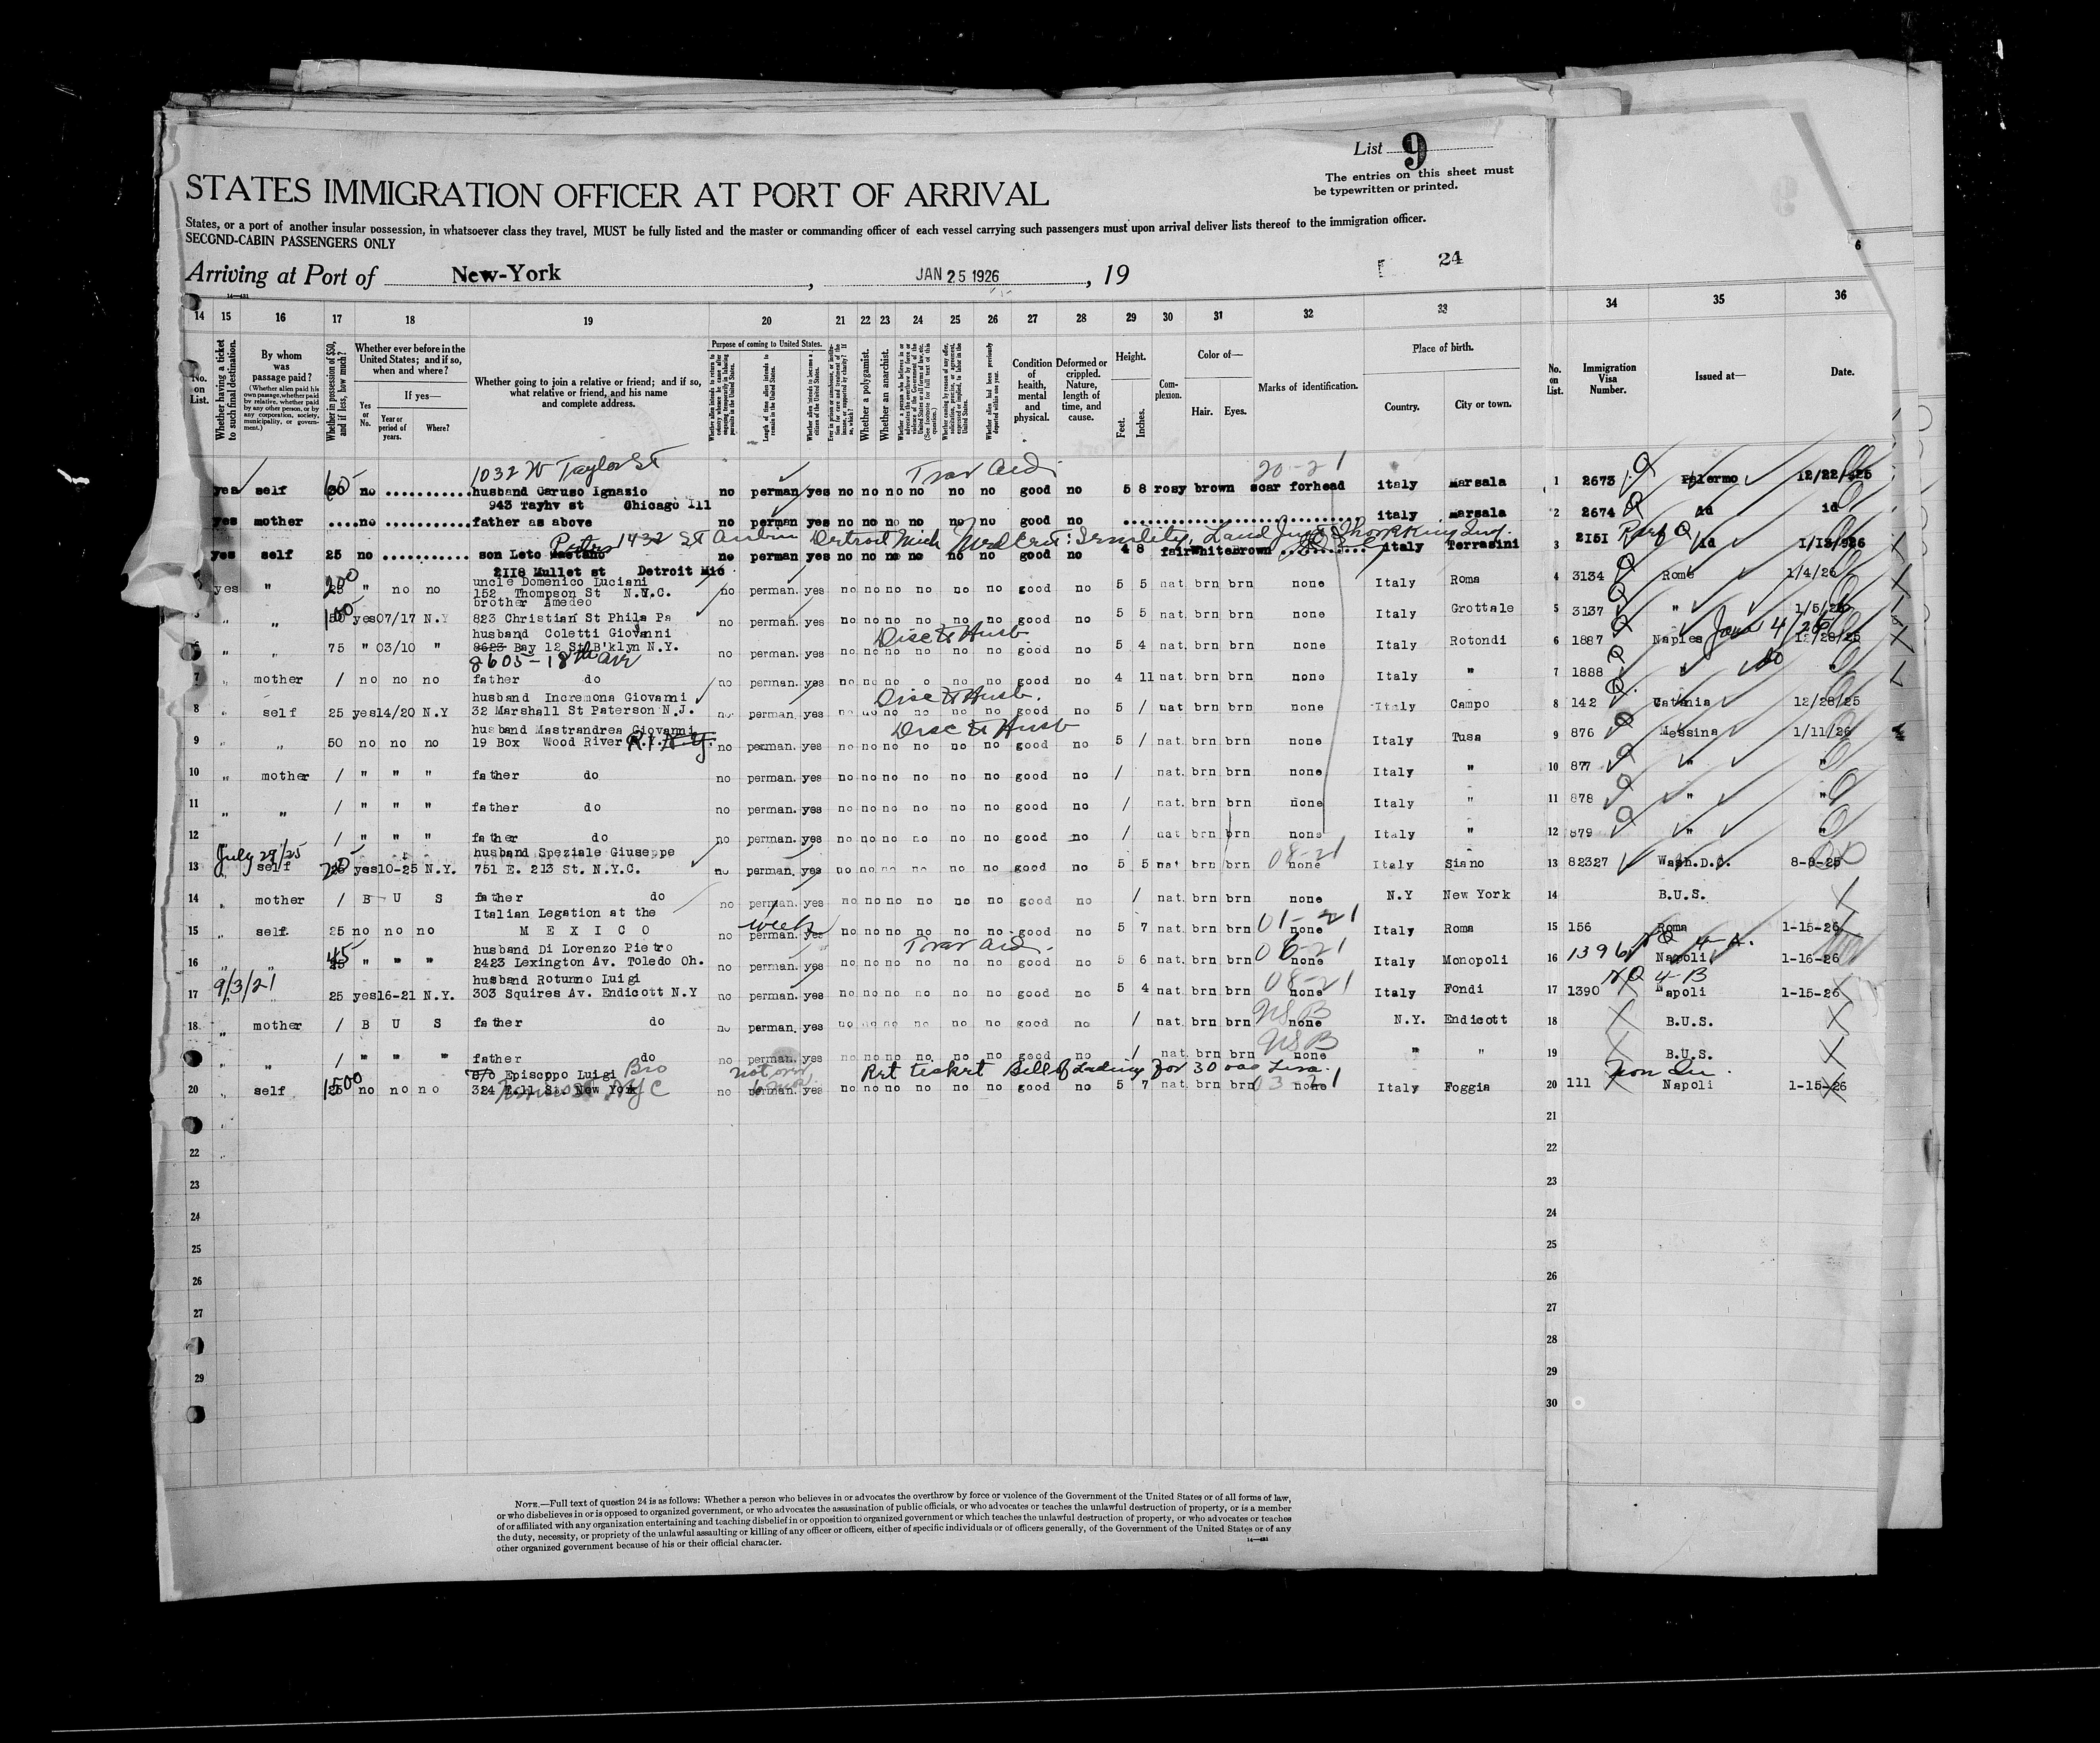 List 9
The entries on this sheet must
be typewritten or printed.
STATES IMMIGRATION OFFICER AT PORT OF ARRIVAL
States, or a port of another insular possession, in whatsoever class they travel, MUST be fully listed and the master or commanding officer of each vessel carrying such passengers must upon arrival deliver lists thereof to the immigration officer.
SECOND-CABIN PASSENGERS ONLY
Arriving at Port of New-York, JAN 25 1926, 19
24
14 15 16 17 18 19 20 21 22 23 24 25 26 27 28 29 30 31 32 33 34 35 36
No. on List.
Whether having a ticket to such final destination.
By whom was passage paid?
(Whether alien paid his own passage, whether paid by relative, whether paid by any other person, or by any corporation, society, municipality, or government.)
Whether in possession of $50, and if less, how much?
Whether ever before in the United States; and if so, when and where?
Yes or No.
If yes—
Year or period of years.
Where?
Whether going to join a relative or friend; and if so, what relative or friend, and his name and complete address.
Purpose of coming to United States.
Length of time alien intends to remain in the United States.
Whether a polygamist.
Whether an anarchist.
Condition of health, mental and physical.
Deformed or crippled. Nature, length of time, and cause.
Height.
Feet.
Inches.
Complexion.
Color of—
Hair.
Eyes.
Marks of identification.
Place of birth.
Country.
City or town.
No. on List.
Immigration Visa Number.
Issued at—
Date.
1032 W Taylor St Trav Aid 20-21
yes self no husband Caruso Ignasio no perman yes no no no no no no good no 5 8 rosy brown scar forhead italy marsala 1 2673 Q Palermo 12/22/925
943 Tayhv st Chicago Ill
yes mother no father as above no perman yes no no no no no no good no italy marsala 2 2674 Q id id
1432 St Detroit Mich Med Cert: Senility,
yes self 25 no son Leto Gaetano no perman yes no no no no no no good no 4 8 fair white brown italy Terrasini 3 2151 Q id 1/13/926
2118 Mullet st Detroit Mic
uncle Domenico Luciani
yes " 25 " no no 152 Thompson St N.Y.C. no perman. yes no no no no no no good no 5 5 nat. brn brn none Italy Roma 4 3134 Rome 1/4/26
brother Amedeo
" " 50 yes 07/17 N.Y 823 Christian St Phila Pa no perman. yes no no no no no no good no 5 5 nat. brn brn none Italy Grottale 5 3137 " 1/5/26
husband Coletti Giovanni Disc to Husb
6 " " 75 " 03/10 " 8623 Bay 12 St B'klyn N.Y. no perman. yes no no no no no no good no 5 4 nat. brn brn none Italy Rotondi 6 1887 Naples 12/28/25
8605-18th av
7 " mother / no no no father do no perman. yes no no no o no no good no 4 11 nat. brn brn none Italy " 7 1888 "
husband Incremona Giovanni Disc to Husb.
8 " self 25 yes 14/20 N.Y 32 Marshall St Paterson N.J. no perman. yes no no no no no no good no 5 / nat brn brn none Italy Campo 8 142 Catania 12/28/25
husband Mastrandrea Giovanni Disc to Husb
9 " " 50 no no no 19 Box Wood River R.I. no perman. yes no no no no no no good no 5 / nat. brn brn none Italy Tusa 9 876 Messina 1/11/26
10 " mother / " " " father do no perman. yes no no no no no no good no / nat. brn brn none Italy " 10 877 " "
11 " " / " " " father do no perman. yes no no no no no no good no / nat. brn brn none Italy " 11 878 " "
12 / " " " father do no perman. yes no no no no no no good no / nat brn brn none Italy " 12 879 " "
July 29/25 husband Speziale Giuseppe 08-21
13 " self yes 10-25 N.Y. 751 E. 213 St. N.Y.C. no perman. yes no no no no no no good no 5 5 nat brn brn none Italy Siano 13 82327 Wash.D.C. 8-9-25
14 " mother / B U S father do no perman. yes no no no no no no good no / nat. brn brn none N.Y New York 14 B.U.S.
Italian Legation at the week 01-21
15 " self. 25 no no no M E X I C O no perman. yes no no no no no no good no 5 7 nat. brn brn none Italy Roma 15 156 Roma 1-15-26
45 husband Di Lorenzo Pietro Trav Aid. 06-21 NQ 4-A.
16 " " 25 " " " 2423 Lexington Av. Toledo Oh. no perman. yes no no no no no no good no 5 6 nat. brn brn none Italy Monopoli 16 1396 Napoli 1-16-26
9/3/21 husband Rotunno Luigi 08-21 NQ 4-B
17 25 yes 16-21 N.Y. 303 Squires Av. Endicott N.Y no perman. yes no no no no no no good no 5 4 nat. brn brn none Italy Fondi 17 1390 Napoli 1-15-26
18 " mother / B U S father do no perman. yes no no no no no no good no / nat. brn brn none USB N.Y. Endicott 18 B.U.S.
" " / " " " father do no perman. yes no no no no no no good no / nat. brn brn none USB " " 19 B.U.S.
c/o Episcopo Luigi Bro not over 6 mos. Bill of Lading for Non Im.
20 " self 1500 no no no 324 E.11 St. New York N.Y.C no perman. yes no no no no no no good no 5 7 nat. brn brn 03-21 none Italy Foggia 20 111 Napoli 1-15-26
21
22 22
23 23
24 24
25 25
26 26
27 27
28 28
29 29
30
NOTE.—Full text of question 24 is as follows: Whether a person who believes in or advocates the overthrow by force or violence of the Government of the United States or of all forms of law,
or who disbelieves in or is opposed to organized government, or who advocates the assassination of public officials, or who advocates or teaches the unlawful destruction of property, or is a member
of or affiliated with any organization entertaining and teaching disbelief in or opposition to organized government or which teaches the unlawful destruction of property, or who advocates or teaches
the duty, necessity, or propriety of the unlawful assaulting or killing of any officer or officers, either of specific individuals or of officers generally, of the Government of the United States or of any
other organized government because of his or their official character.